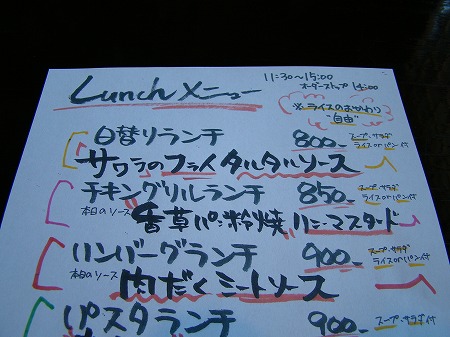 Lunchメニュー
11:30〜15:00
オーダーストップ 14:00
※ライスのおかわり
"自由"
日替りランチ 800-
スープ・サラダ
ライスorパン付
サワラのフライタルタルソース
チキングリルランチ 850-
スープ・サラダ
ライスorパン付
本日のソース 香草パン粉焼ハニーマスタード
ハンバーグランチ 900-
スープ・サラダ
ライスorパン付
本日のソース 肉だくミートソース
パスタランチ 900-
スープ・サラダ付